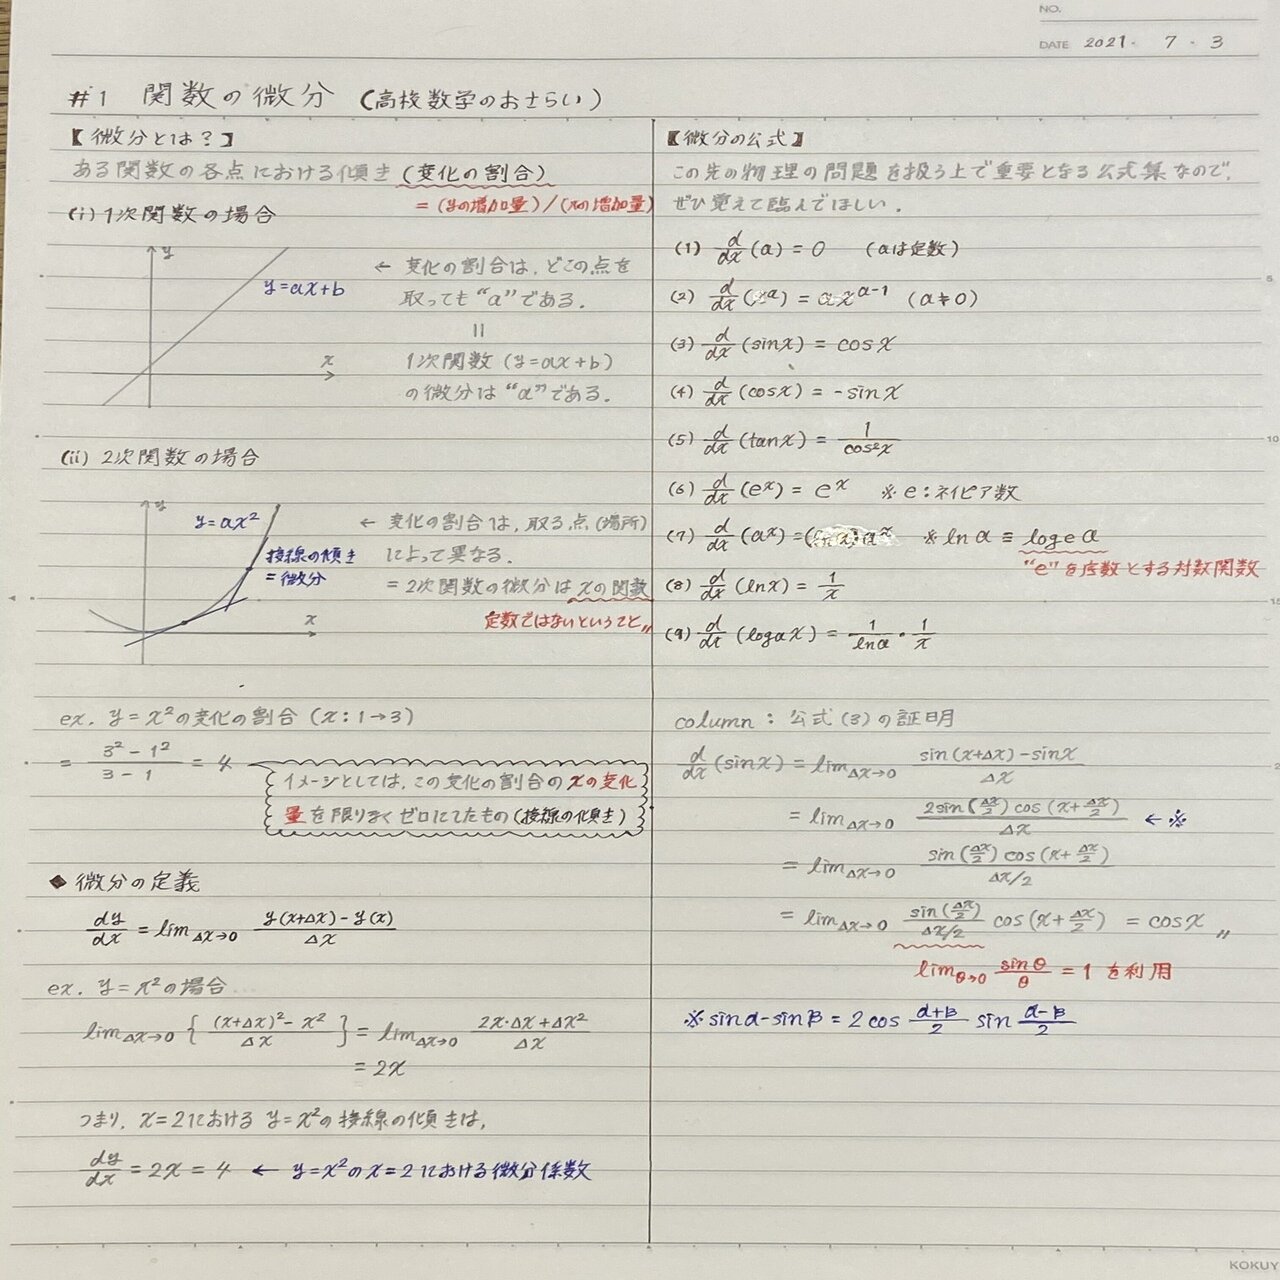 NO.
DATE 2021. 7. 3
#1 関数の微分 (高校数学のおさらい)
【微分とは?】
ある関数の各点における傾き(変化の割合)
= (yの増加量)/(xの増加量)
(i) 1次関数の場合
y
y=ax+b
x
← 変化の割合は、どこの点を
取っても“a”である.
=
1次関数 (y=ax+b)
の微分は“a”である.
(ii) 2次関数の場合
y
y=ax²
接線の傾き
=微分
x
← 変化の割合は、取る点(場所)
によって異なる.
= 2次関数の微分はxの関数
定数ではないということ〃
ex. y=x²の変化の割合 (x:1→3)
= (3²-1²)/(3-1) = 4
イメージとしては、この変化の割合のxの変化
量を限りなくゼロにしたもの(接線の傾き)
◆ 微分の定義
dy/dx = lim Δx→0 (y(x+Δx)-y(x))/Δx
ex. y=x²の場合
lim Δx→0 {((x+Δx)²-x²)/Δx} = lim Δx→0 (2x·Δx+Δx²)/Δx
= 2x
つまり、x=2における y=x²の接線の傾きは、
dy/dx = 2x = 4 ← y=x²のx=2における微分係数
【微分の公式】
この先の物理の問題を扱う上で重要となる公式集なので、
ぜひ覚えて臨んでほしい.
(1) d/dx (a) = 0 (aは定数)
(2) d/dx (xᵃ) = axᵃ⁻¹ (a≠0)
(3) d/dx (sinx) = cosx
(4) d/dx (cosx) = -sinx
(5) d/dx (tanx) = 1/cos²x
(6) d/dx (eˣ) = eˣ ※e:ネイピア数
(7) d/dx (aˣ) = (ln a) aˣ ※ln a ≡ logₑ a
“e”を底数とする対数関数
(8) d/dx (lnx) = 1/x
(9) d/dx (logₐx) = 1/lna · 1/x
column : 公式(3)の証明
d/dx (sinx) = lim Δx→0 (sin(x+Δx)-sinx)/Δx
= lim Δx→0 (2sin(Δx/2)cos(x+Δx/2))/Δx ←※
= lim Δx→0 (sin(Δx/2)cos(x+Δx/2))/(Δx/2)
= lim Δx→0 sin(Δx/2)/(Δx/2) cos(x+Δx/2) = cosx〃
lim θ→0 sinθ/θ = 1 を利用
※sinα-sinβ = 2cos (α+β)/2 sin (α-β)/2
5
10
15
KOKUY